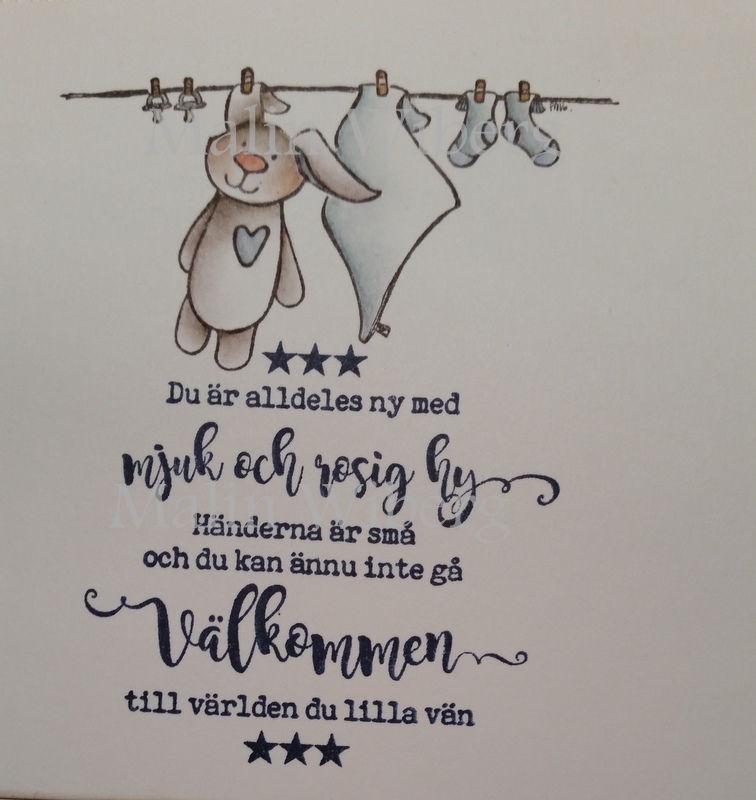 Malin Wiberg
★★★
Du är alldeles ny med
mjuk och rosig hy
Malin Wiberg
Händerna är små
och du kan ännu inte gå
Välkommen
till världen du lilla vän
★★★